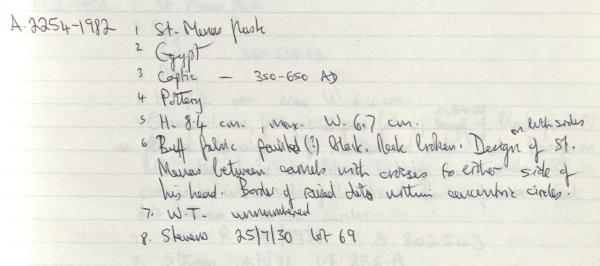 A.2254-1982 1 St. Menas flask
2 Egypt
3 Coptic — 350-650 AD
4 Pottery
5 H. 8.4 cm., max. W. 6.7 cm.
on both sides
6 Buff fabric painted (?) black. Neck broken. Design of St.
Menas between camels with crosses to either side of
his head. Border of raised dots within concentric circles.
7. W.T. unnumbered
8. Stevens 25/7/30 lot 69